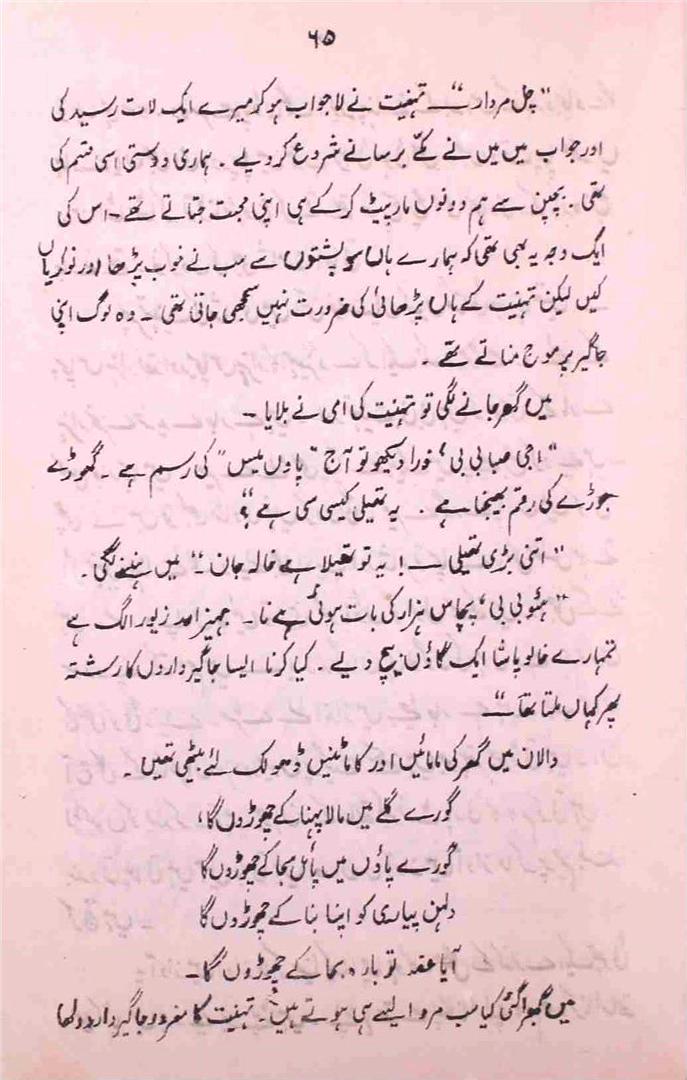 ۶۵
"چل مردار" — تہنیت نے لاجواب ہو کر میرے ایک لات رسید کی
اور جواب میں میں نے مکّے برسانے شروع کر دیے ۔ ہماری دوستی اسی قسم کی
تھی ۔ بچپن سے ہم دونوں مارپیٹ کر کے ہی اپنی محبت جتاتے تھے ۔ اس کی
ایک وجہ یہ بھی تھی کہ ہمارے ہاں پشتوں سے سب نے خوب پڑھا اور نوکریاں
کیں لیکن تہنیت کے ہاں پڑھائی کی ضرورت نہیں سمجھی جاتی تھی ۔ وہ لوگ اپنی
جاگیر پر موج مناتے تھے ۔
میں گھر جانے لگی تو تہنیت کی امی نے بلایا ۔
"اجی صبا بی بی، ذرا دیکھو تو آج "پاؤں میس" کی رسم ہے ۔ گھوڑے
جوڑے کی رقم بھیجنا ہے ۔ یہ تھیلی کیسی سی ہے ؟"
"اتنی بڑی تھیلی — ! یہ تو تھیلا ہے خالہ جان ۔" میں ہنسنے لگی ۔
"ہئو بی بی، پچاس ہزار کی بات ہوئی ہے نا ۔ جہیز اور زیور الگ ہے
تمہارے خالو پاشا ایک گاؤں بیچ دیے ۔ کیا کرنا ایسا جاگیرداروں کا رشتہ
پھر کہاں ملتا تھا" —
دالان میں گھر کی مامائیں اور کاماٹنیں ڈھولک لئے بیٹھی تھیں ۔
گورے گلے میں مالا پہنا کے چھوڑوں گا،
گورے پاؤں میں پائل سجا کے چھوڑوں گا
دلہن پیاری کو اپنا بنا کے چھوڑوں گا
آیا عقد تو بارہ بجا کے چھوڑوں گا ۔
میں گھبرا گئی کیا سب مرد ایسے ہی ہوتے ہیں ۔ تہنیت کا مغرور جاگیردار دولھا